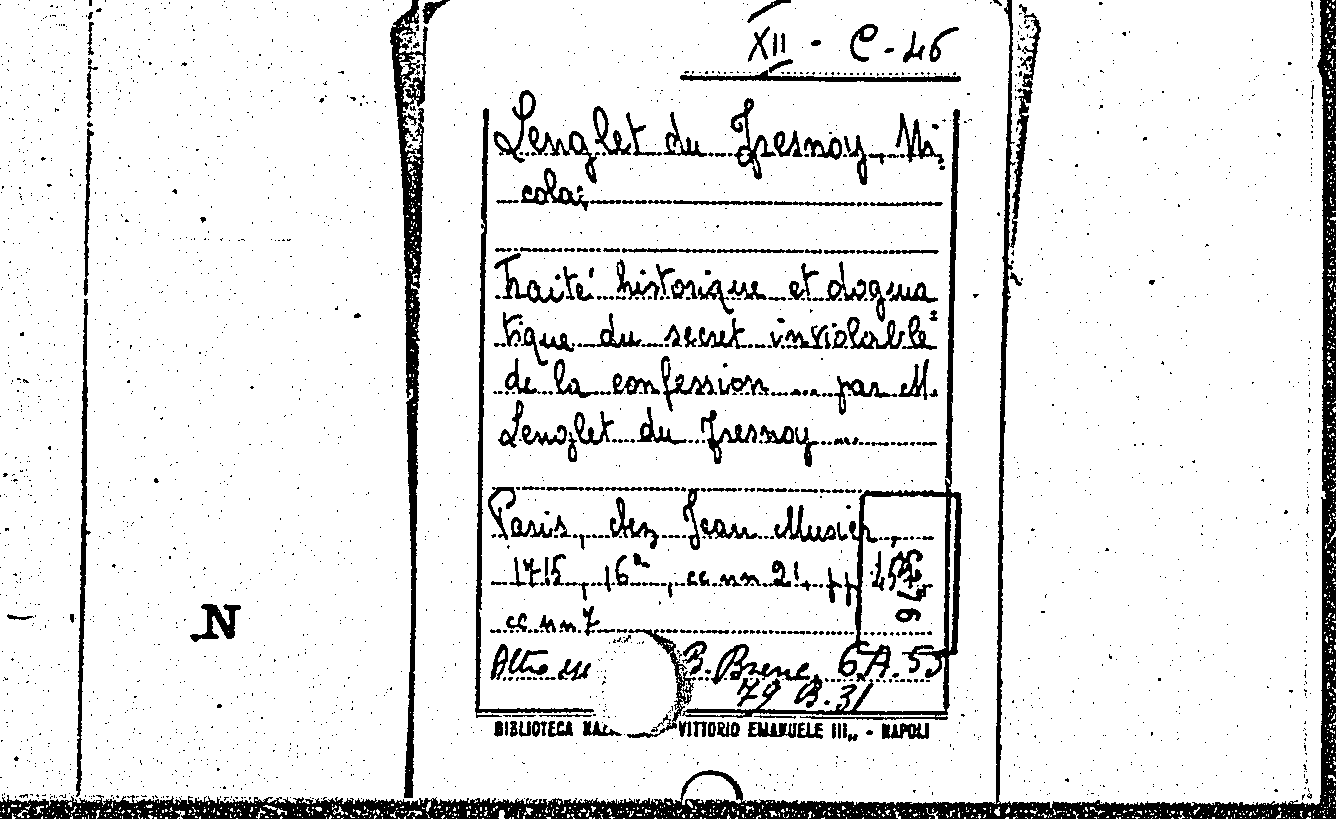 XII - C - 46
Lenglet du Fresnoy, Ni=
colas
Traité historique et dogma
tique du secret inviolable
de la confession ... par M.
Lenglet du Fresnoy ...
Paris, chez Jean Musier,
1715, 16°, cc nn 21, pp
cc nn 7
Altro es B. Branc. 6.A.55
79 B.31
N
BIBLIOTECA NAZ VITTORIO EMANUELE III„ - NAPOLI